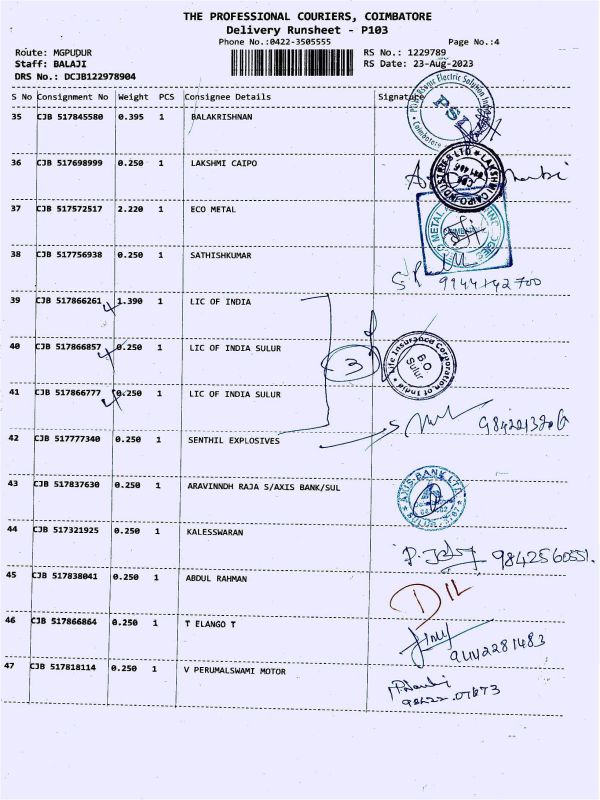 THE PROFESSIONAL COURIERS, COIMBATORE
Delivery Runsheet - P103
Phone No.:0422-3505555 Page No.:4
Route: MGPUDUR RS No.: 1229789
Staff: BALAJI RS Date: 23-Aug-2023
DRS No.: DCJB122978904
S No Consignment No Weight PCS Consignee Details Signature
35 CJB 517845580 0.395 1 BALAKRISHNAN
36 CJB 517698999 0.250 1 LAKSHMI CAIPO
LAKSHMI CAIPO INDUSTRIES LTD.
37 CJB 517572517 2.220 1 ECO METAL
38 CJB 517756938 0.250 1 SATHISHKUMAR
9944142700
39 CJB 517866261 1.390 1 LIC OF INDIA
40 CJB 517866857 0.250 1 LIC OF INDIA SULUR
3
Life Insurance Corporation of India
B.O
Sulur
41 CJB 517866777 0.250 1 LIC OF INDIA SULUR
42 CJB 517777340 0.250 1 SENTHIL EXPLOSIVES
43 CJB 517837630 0.250 1 ARAVINNDH RAJA S/AXIS BANK/SUL
AXIS BANK LTD
44 CJB 517321925 0.250 1 KALESSWARAN
9842560551.
45 CJB 517838041 0.250 1 ABDUL RAHMAN
DIL
46 CJB 517866864 0.250 1 T ELANGO T
9442281483
47 CJB 517818114 0.250 1 V PERUMALSWAMI MOTOR